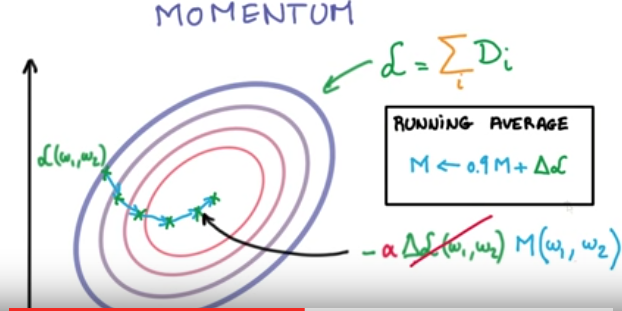 MOMENTUM
ℒ = Σ Dᵢ
i
ℒ(ω₁,ω₂)
RUNNING AVERAGE
M ← 0.9M + Δℒ
-α Δℒ(ω₁,ω₂) M(ω₁, ω₂)